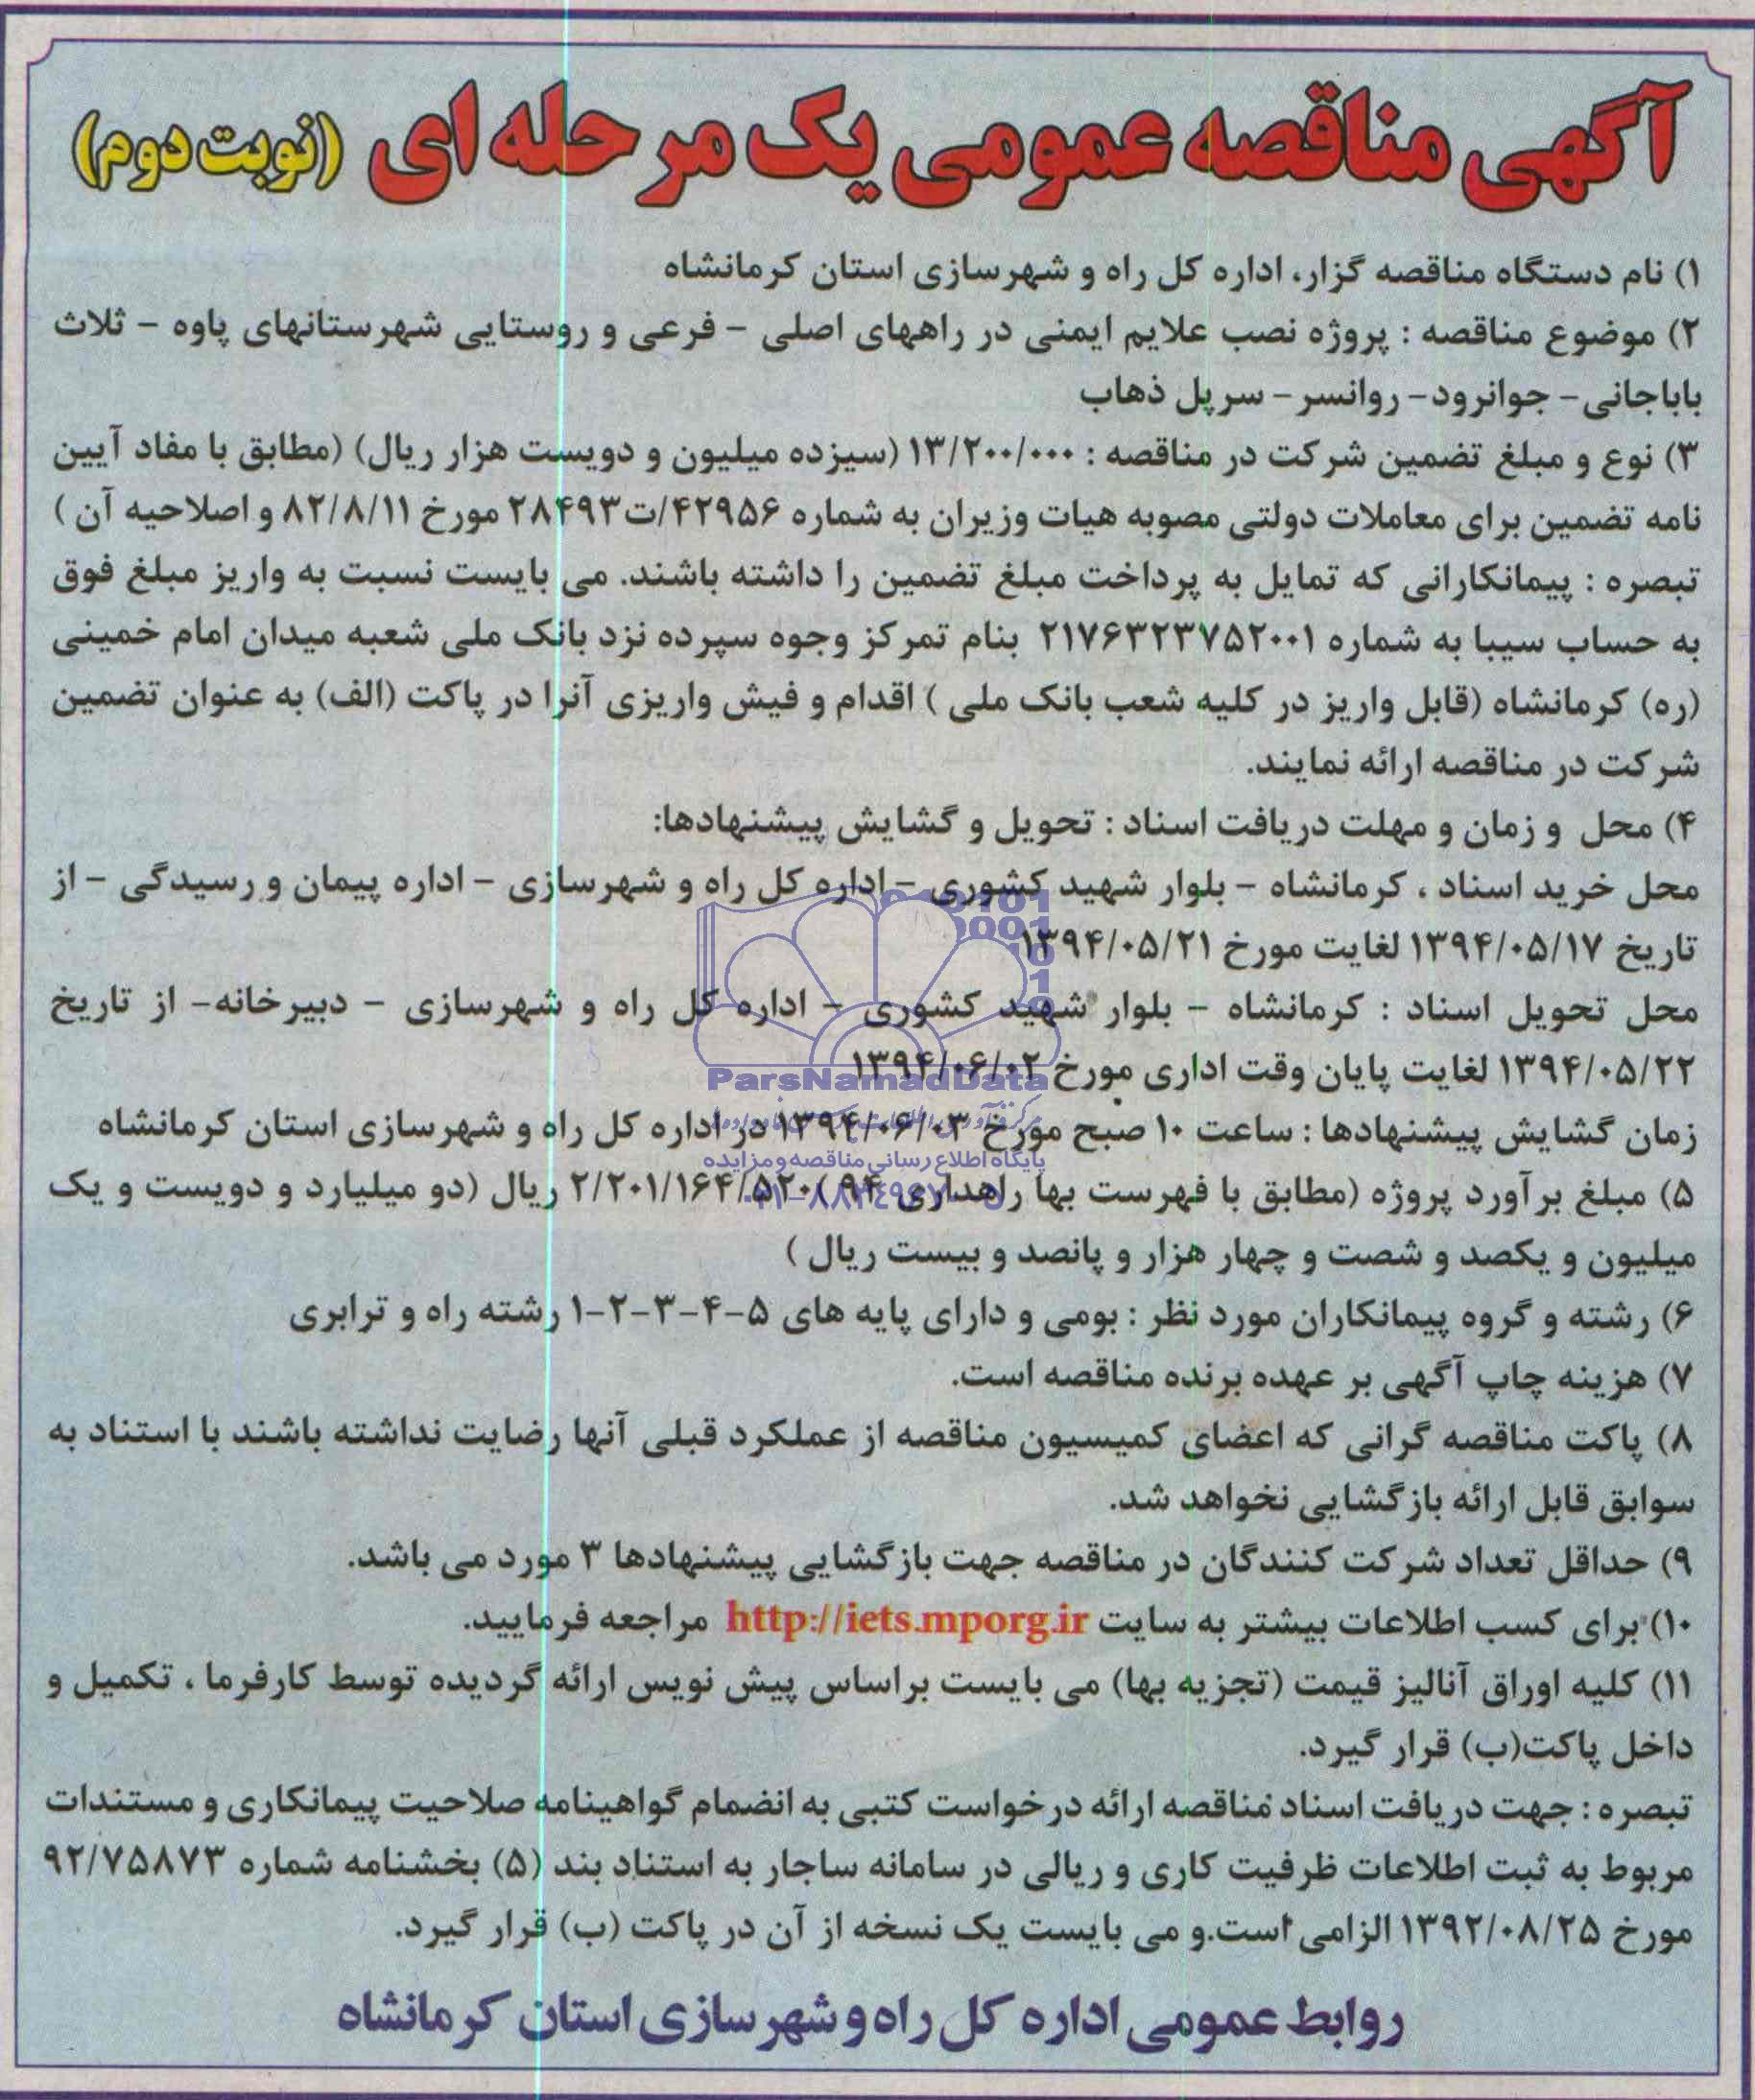 آگهی مناقصه عمومی یک مرحله ای (نوبت دوم)
۱) نام دستگاه مناقصه گزار، اداره کل راه و شهرسازی استان کرمانشاه
۲) موضوع مناقصه : پروژه نصب علایم ایمنی در راههای اصلی - فرعی و روستایی شهرستانهای پاوه - ثلاث
باباجانی - جوانرود - روانسر - سرپل ذهاب
۳) نوع و مبلغ تضمین شرکت در مناقصه : ۱۳/۲۰۰/۰۰۰ (سیزده میلیون و دویست هزار ریال) (مطابق با مفاد آیین
نامه تضمین برای معاملات دولتی مصوبه هیات وزیران به شماره ۴۲۹۵۶/ت۲۸۴۹۳ مورخ ۸۲/۸/۱۱ و اصلاحیه آن )
تبصره : پیمانکارانی که تمایل به پرداخت مبلغ تضمین را داشته باشند. می بایست نسبت به واریز مبلغ فوق
به حساب سیبا به شماره ۲۱۷۶۳۲۳۷۵۲۰۰۱ بنام تمرکز وجوه سپرده نزد بانک ملی شعبه میدان امام خمینی
(ره) کرمانشاه (قابل واریز در کلیه شعب بانک ملی ) اقدام و فیش واریزی آنرا در پاکت (الف) به عنوان تضمین
شرکت در مناقصه ارائه نمایند.
۴) محل و زمان و مهلت دریافت اسناد : تحویل و گشایش پیشنهادها:
محل خرید اسناد ، کرمانشاه - بلوار شهید کشوری - اداره کل راه و شهرسازی - اداره پیمان و رسیدگی - از
تاریخ ۱۳۹۴/۰۵/۱۷ لغایت مورخ ۱۳۹۴/۰۵/۲۱
محل تحویل اسناد : کرمانشاه - بلوار شهید کشوری - اداره کل راه و شهرسازی - دبیرخانه- از تاریخ
۱۳۹۴/۰۵/۲۲ لغایت پایان وقت اداری مورخ ۱۳۹۴/۰۶/۰۲
ParsNamadData
زمان گشایش پیشنهادها : ساعت ۱۰ صبح مورخ ۱۳۹۴/۰۶/۰۳ در اداره کل راه و شهرسازی استان کرمانشاه
پایگاه اطلاع رسانی مناقصه و مزایده
۵) مبلغ برآورد پروژه (مطابق با فهرست بها راهداری ۹۴ ) ۲/۲۰۱/۱۶۴/۵۲۰ ریال (دو میلیارد و دویست و یک
میلیون و یکصد و شصت و چهار هزار و پانصد و بیست ریال )
۶) رشته و گروه پیمانکاران مورد نظر : بومی و دارای پایه های ۵-۴-۳-۲-۱ رشته راه و ترابری
۷) هزینه چاپ آگهی بر عهده برنده مناقصه است.
۸) پاکت مناقصه گرانی که اعضای کمیسیون مناقصه از عملکرد قبلی آنها رضایت نداشته باشند با استناد به
سوابق قابل ارائه بازگشایی نخواهد شد.
۹) حداقل تعداد شرکت کنندگان در مناقصه جهت بازگشایی پیشنهادها ۳ مورد می باشد.
۱۰) برای کسب اطلاعات بیشتر به سایت http://iets.mporg.ir مراجعه فرمایید.
۱۱) کلیه اوراق آنالیز قیمت (تجزیه بها) می بایست براساس پیش نویس ارائه گردیده توسط کارفرما ، تکمیل و
داخل پاکت(ب) قرار گیرد.
تبصره : جهت دریافت اسناد مناقصه ارائه درخواست کتبی به انضمام گواهینامه صلاحیت پیمانکاری و مستندات
مربوط به ثبت اطلاعات ظرفیت کاری و ریالی در سامانه ساجار به استناد بند (۵) بخشنامه شماره ۹۲/۷۵۸۷۳
مورخ ۱۳۹۲/۰۸/۲۵ الزامی است.و می بایست یک نسخه از آن در پاکت (ب) قرار گیرد.
روابط عمومی اداره کل راه و شهرسازی استان کرمانشاه